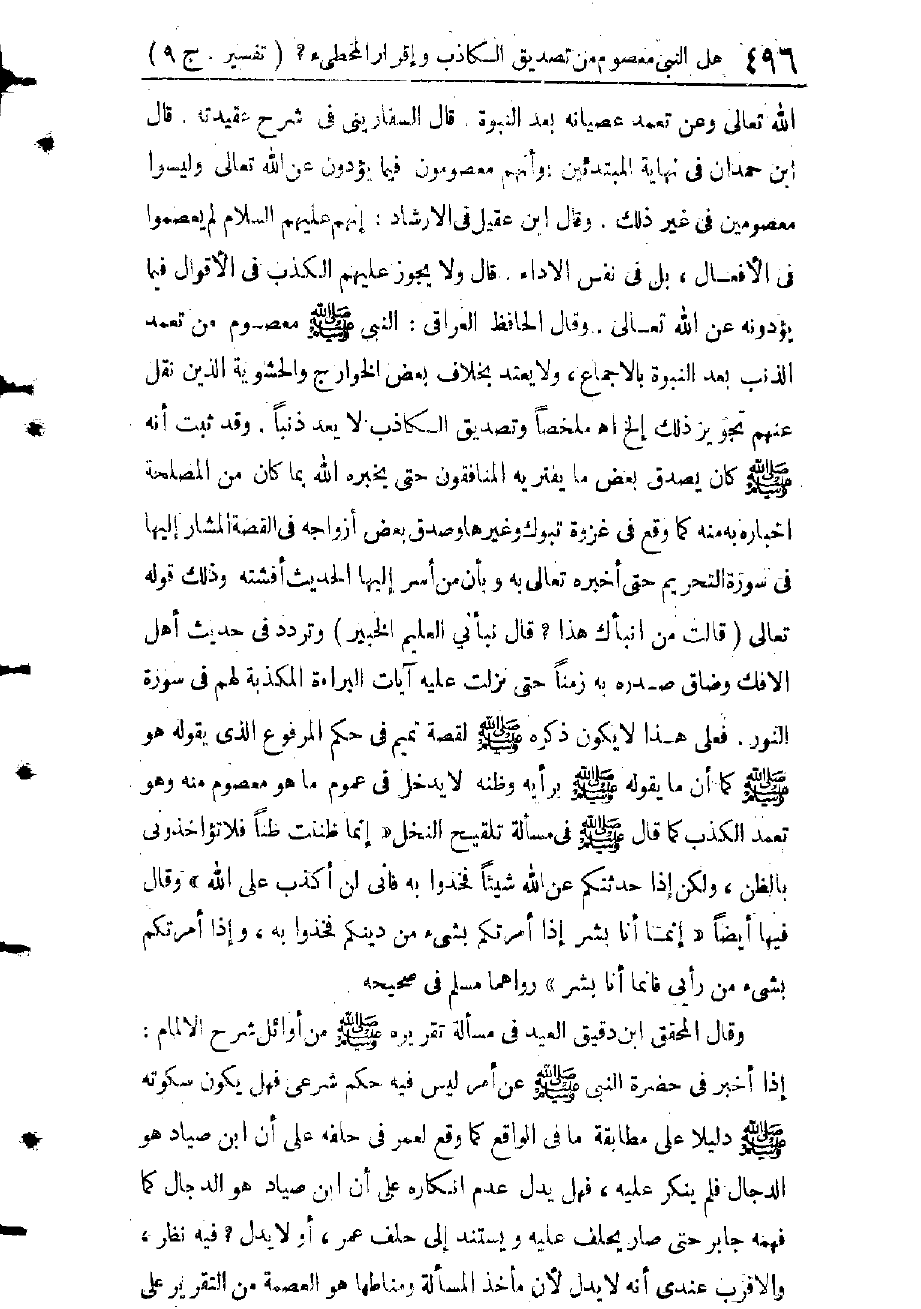 ٤٩٦ هل النبي معصوم من تصديق الكاذب وإقرار المخطىء ؟ ( تفسير . ج ٩ )
الله تعالى وعن تعمد عصيانه بعد النبوة . قال السفاريني في شرح عقيدته . قال
ابن حمدان في نهاية المبتدئين : وأنهم معصومون فيما يؤدون عن الله تعالى وليسوا
معصومين في غير ذلك . وقال ابن عقيل في الارشاد : إنهم عليهم السلام لم يعصموا
في الأفعـال ، بل في نفس الاداء . قال ولا يجوز عليهم الكذب في الأقوال فيما
يؤدونه عن الله تعـالى . وقال الحافظ العراقي : النبي ﷺ معصـوم من تعمد
الذنب بعد النبوة بالاجماع ، ولا يعتد بخلاف بعض الخوارج والحشوية الذين نقل
عنهم تجويز ذلك إلخ اه ملخصاً وتصديق الكاذب لا يعد ذنباً . وقد ثبت أنه
ﷺ كان يصدق بعض ما يفتريه المنافقون حتى يخبره الله بما كان من المصلحة
اخباره به منه كما وقع في غزوة تبوك وغيرها وصدق بعض أزواجه في القصة المشار إليها
في سورة التحريم حتى أخبره تعالى به وبأن من أسر إليها الحديث أفشته وذلك قوله
تعالى ( قالت من انبأك هذا ؟ قال نبأني العليم الخبير ) وتردد في حديث أهل
الافك وضاق صـدره به زمناً حتى نزلت عليه آيات البراءة المكذبة لهم في سورة
النور . فعلى هـذا لا يكون ذكره ﷺ لقصة تميم في حكم المرفوع الذى يقوله هو
ﷺ كما أن ما يقوله ﷺ برأيه وظنه لا يدخل في عموم ما هو معصوم منه وهو
تعمد الكذب كما قال ﷺ في مسألة تلقيح النخل « إنما ظننت ظناً فلا تؤاخذوني
بالظن ، ولكن إذا حدثتكم عن الله شيئاً فخذوا به فاني لن أكذب على الله » وقال
فيها أيضاً « إنمـا أنا بشر إذا أمرتكم بشيء من دينكم فخذوا به ، وإذا أمرتكم
بشيء من رأيي فانما أنا بشر » رواهما مسلم في صحيحه
وقال المحقق ابن دقيق العيد في مسألة تقريره ﷺ من أوائل شرح الالمام :
إذا أخبر في حضرة النبي ﷺ عن أمر ليس فيه حكم شرعي فهل يكون سكوته
ﷺ دليلا على مطابقة ما في الواقع كما وقع لعمر في حلفه على أن ابن صياد هو
الدجال فلم ينكر عليه ، فهل يدل عدم انـكاره على أن ابن صياد هو الدجال كما
فهمه جابر حتى صار يحلف عليه ويستند إلى حلف عمر ، أو لا يدل ؟ فيه نظر ،
والاقرب عندى أنه لا يدل لأن مأخذ المسألة ومناطها هو العصمة من التقرير على